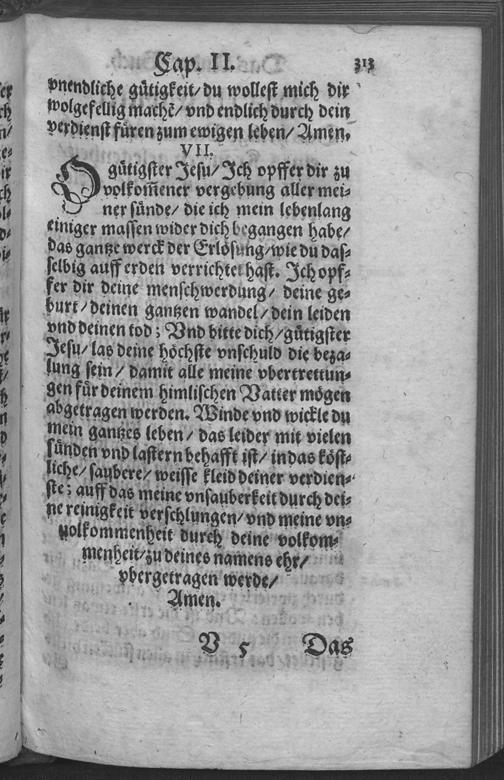 Cap. II. 313
vnendliche gütigkeit/ du wollest mich dir
wolgefellig machē/ vnd endlich durch dein
verdienst füren zum ewigen leben/ Amen.
VII.
O gütigster Jesu/ Ich opffer dir zu
volkom̃ener vergebung aller mei⸗
ner sünde/ die ich mein lebenlang
einiger massen wider dich begangen habe/
das gantze werck der Erlösung/ wie du das⸗
selbig auff erden verrichtet hast. Ich opf⸗
fer dir deine menschwerdung/ deine ge⸗
burt/ deinen gantzen wandel/ dein leiden
vnd deinen tod; Vnd bitte dich/ gütigster
Jesu/ las deine höchste vnschuld die beza⸗
lung sein/ damit alle meine vbertrettun⸗
gen für deinem himlischen Vatter mögen
abgetragen werden. Winde vnd wickle du
mein gantzes leben/ das leider mit vielen
sünden vnd lastern behafft ist/ in das köst⸗
liche/ saubere/ weisse kleid deiner verdien⸗
ste; auff das meine vnsauberkeit durch dei⸗
ne reinigkeit verschlungen/ vnd meine vn⸗
volkommenheit durch deine volkom⸗
menheit/ zu deines namens ehr/
vbergetragen werde/
Amen.
V 5 Das